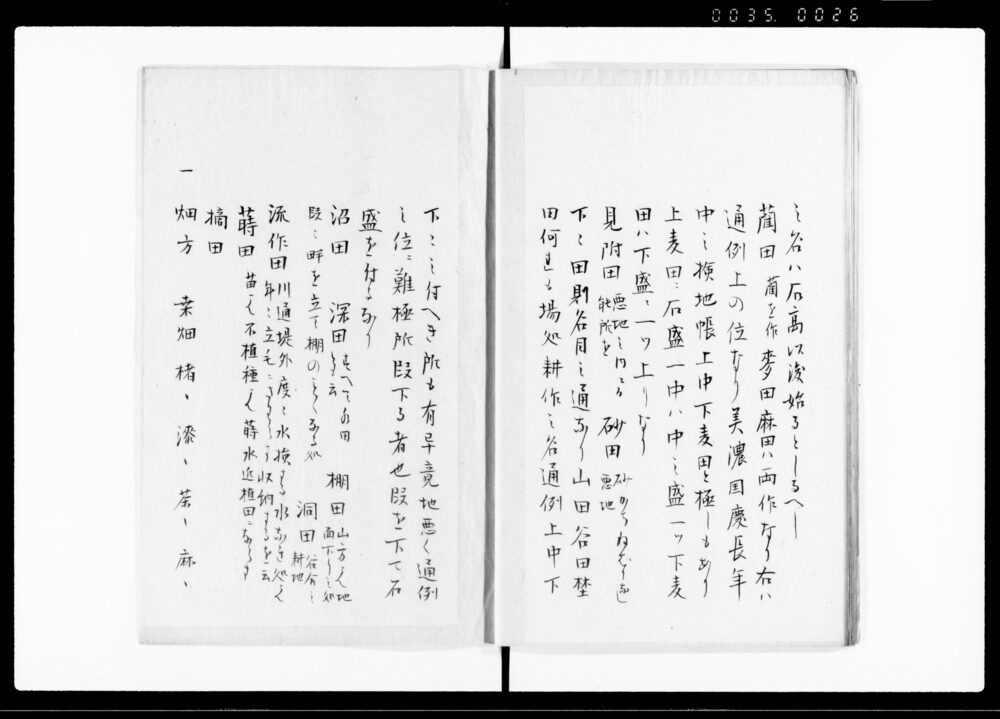 0035. 0026
之谷ハ石高以後始るとしるへし
藺田 藺を作 麥田麻田ハ両作なり右ハ
通例上の位なり美濃国慶長年
中之検地帳上中下麦田と極しもあり
上麦田ニ石盛一中ハ中之盛一ツ下麦
田ハ下盛ニ一ツ上りなり
見附田 悪地之内ニ而能所を 砂田 砂かちねはりなし悪地
下々田則名目之通なり山田谷田埜
田何れも場処耕作之名通例上中下
下々之付へき所も有早竟地悪く通例
之位ニ難極所段下る者也段を下て石
盛を付るなり
沼田 深田 すへて水田を云 棚田 山方ニ而地面下りし処
段ニ畔を立て棚のことくなる処 洞田 谷合之耕地
流作田 川通堤外度々水損する水あき処ニ而年ニ立毛 収納するを云
蒔田 苗ニ而不植種ニ而蒔水近植田になるも
摘田
一 畑方 桑畑 楮〻 漆〻 茶〻 麻〻